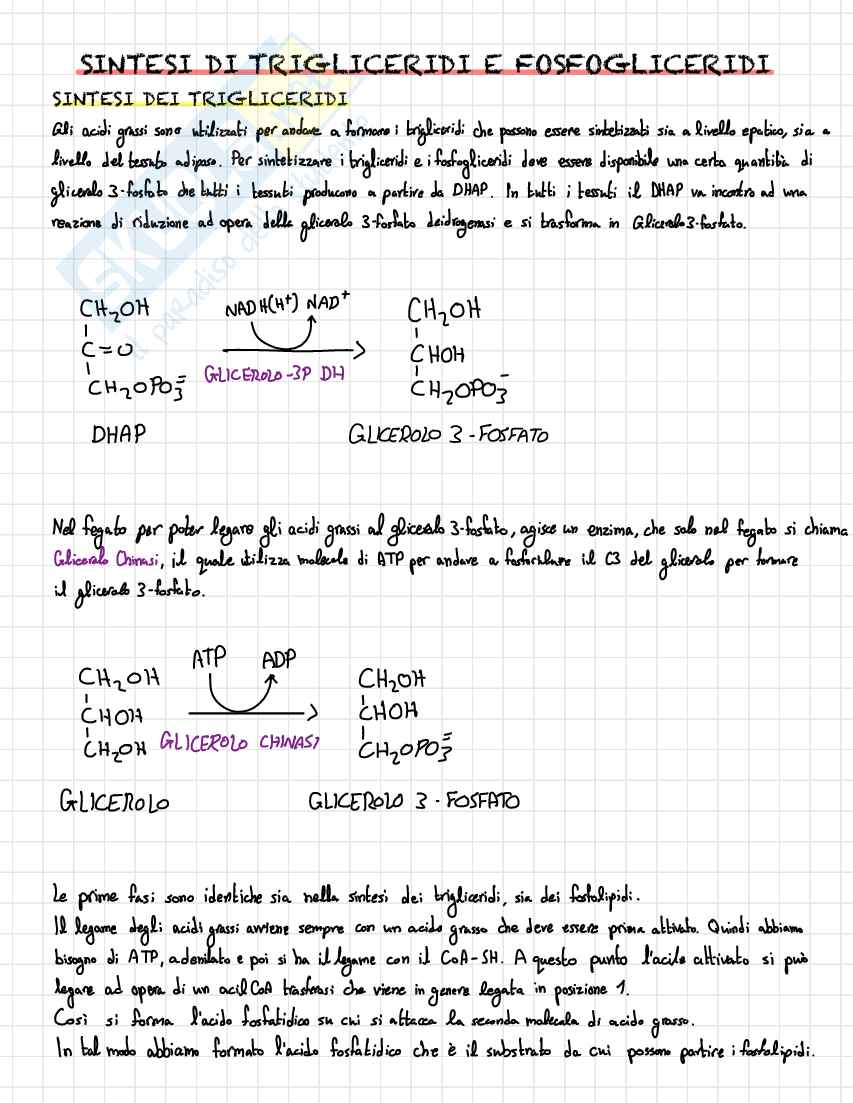 SINTESI DI TRIGLICERIDI E FOSFOGLICERIDI
SINTESI DEI TRIGLICERIDI
Gli acidi grassi sono utilizzati per andare a formare i trigliceridi che possono essere sintetizzati sia a livello epatico, sia a
livello del tessuto adiposo. Per sintetizzare i trigliceridi e i fosfogliceridi deve essere disponibile una certa quantità di
glicerolo 3-fosfato che tutti i tessuti producono a partire da DHAP. In tutti i tessuti il DHAP va incontro ad una
reazione di riduzione ad opera della glicerolo 3-fosfato deidrogenasi e si trasforma in Glicerolo 3-fosfato.
CH2OH NADH(H+) NAD+ CH2OH
C=O CHOH
CH2OPO3= GLICEROLO-3P DH CH2OPO3=
DHAP GLICEROLO 3-FOSFATO
Nel fegato per poter legare gli acidi grassi al glicerolo 3-fosfato, agisce un enzima, che solo nel fegato si chiama
Glicerolo Chinasi, il quale utilizza molecole di ATP per andare a fosforilare il C3 del glicerolo per formare
il glicerolo 3-fosfato.
CH2OH ATP ADP CH2OH
CHOH CHOH
CH2OH GLICEROLO CHINASI CH2OPO3=
GLICEROLO GLICEROLO 3-FOSFATO
Le prime fasi sono identiche sia nella sintesi dei trigliceridi, sia dei fosfolipidi.
Il legame degli acidi grassi avviene sempre con un acido grasso che deve essere prima attivato. Quindi abbiamo
bisogno di ATP, adenilato e poi si ha il legame con il CoA-SH. A questo punto l'acile attivato si può
legare ad opera di un acil CoA trasferasi che viene in genere legata in posizione 1.
Così si forma l'acido fosfatidico su cui si attacca la seconda molecola di acido grasso.
In tal modo abbiamo formato l'acido fosfatidico che è il substrato da cui possono partire i fosfolipidi.
il paradiso dello studente